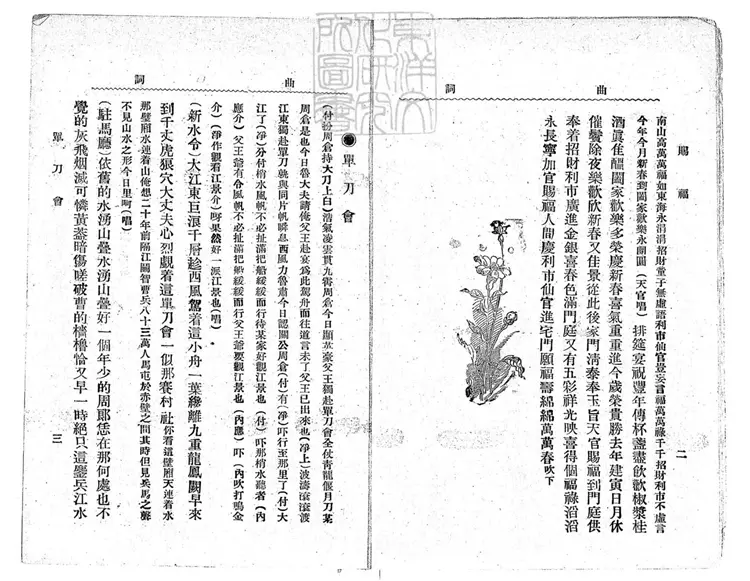 曲詞
賜福
二
南山高萬萬福如東海永涓涓招財童子無虛語利市仙官豈妄言福萬萬祿千千招財利市不虛言
今年今月新春到闔家歡樂永團圓（天官唱）排筵宴祝豐年傳杯盞盡飲歡椒漿桂
酒眞佳醞闔家歡樂多榮慶新春喜氣重重進今歲榮貴勝去年建寅日月休
催鬢除夜樂歡欣新春又佳景從此後家門清泰奉玉旨天官賜福到門庭供
奉着招財利市廣進金銀喜春色滿門庭又有五彩祥光映喜得個福祿滔滔
永長寧加官賜福人間慶利市仙官進宅門願福壽綿綿萬萬春吹下
曲詞
單刀會
三
●單刀會
（付扮周倉持大刀上白）浩氣凌雲貫九霄周倉今日顯英豪父王獨赴單刀會全仗青龍偃月刀某
周倉是也今日魯大夫請俺父王赴宴爲此駕舟而往道言未了父王已出來也（淨上）波濤滾滾渡
江東獨赴單刀孰與同片帆瞬息西風力魯肅今日認關公周倉（付）有（淨）行至那里了（付）大
江了（淨）分付梢水風帆不必扯滿把船緩緩而行待某家好觀江景也（付）吓那梢水聽者（內
應介）父王爺有令風帆不必扯滿把船緩緩而行父王爺要觀江景也（內應）吓（內吹打鳴金
介）（淨作觀看江景介）呀果然好一派江景也（唱）
（新水令）大江東巨浪千層趁西風駕着這小舟一葉纔離九重龍鳳闕早來
到千丈虎狼穴大丈夫心烈覷着這單刀會一似那賽村社你看這壁廂天連着水
那壁廂水連着山俺想二十年前隔江鬭智曹兵八十三萬人馬屯於赤壁之間其時但見兵馬之聲
不見山水之形今日里呵（唱）
（駐馬廳）依舊的水湧山疊水湧山疊好一個年少的周郞恁在那何處也不
覺的灰飛烟滅可憐黃蓋暗傷嗟破曹的檣櫓恰又早一時絕只這鏖兵江水